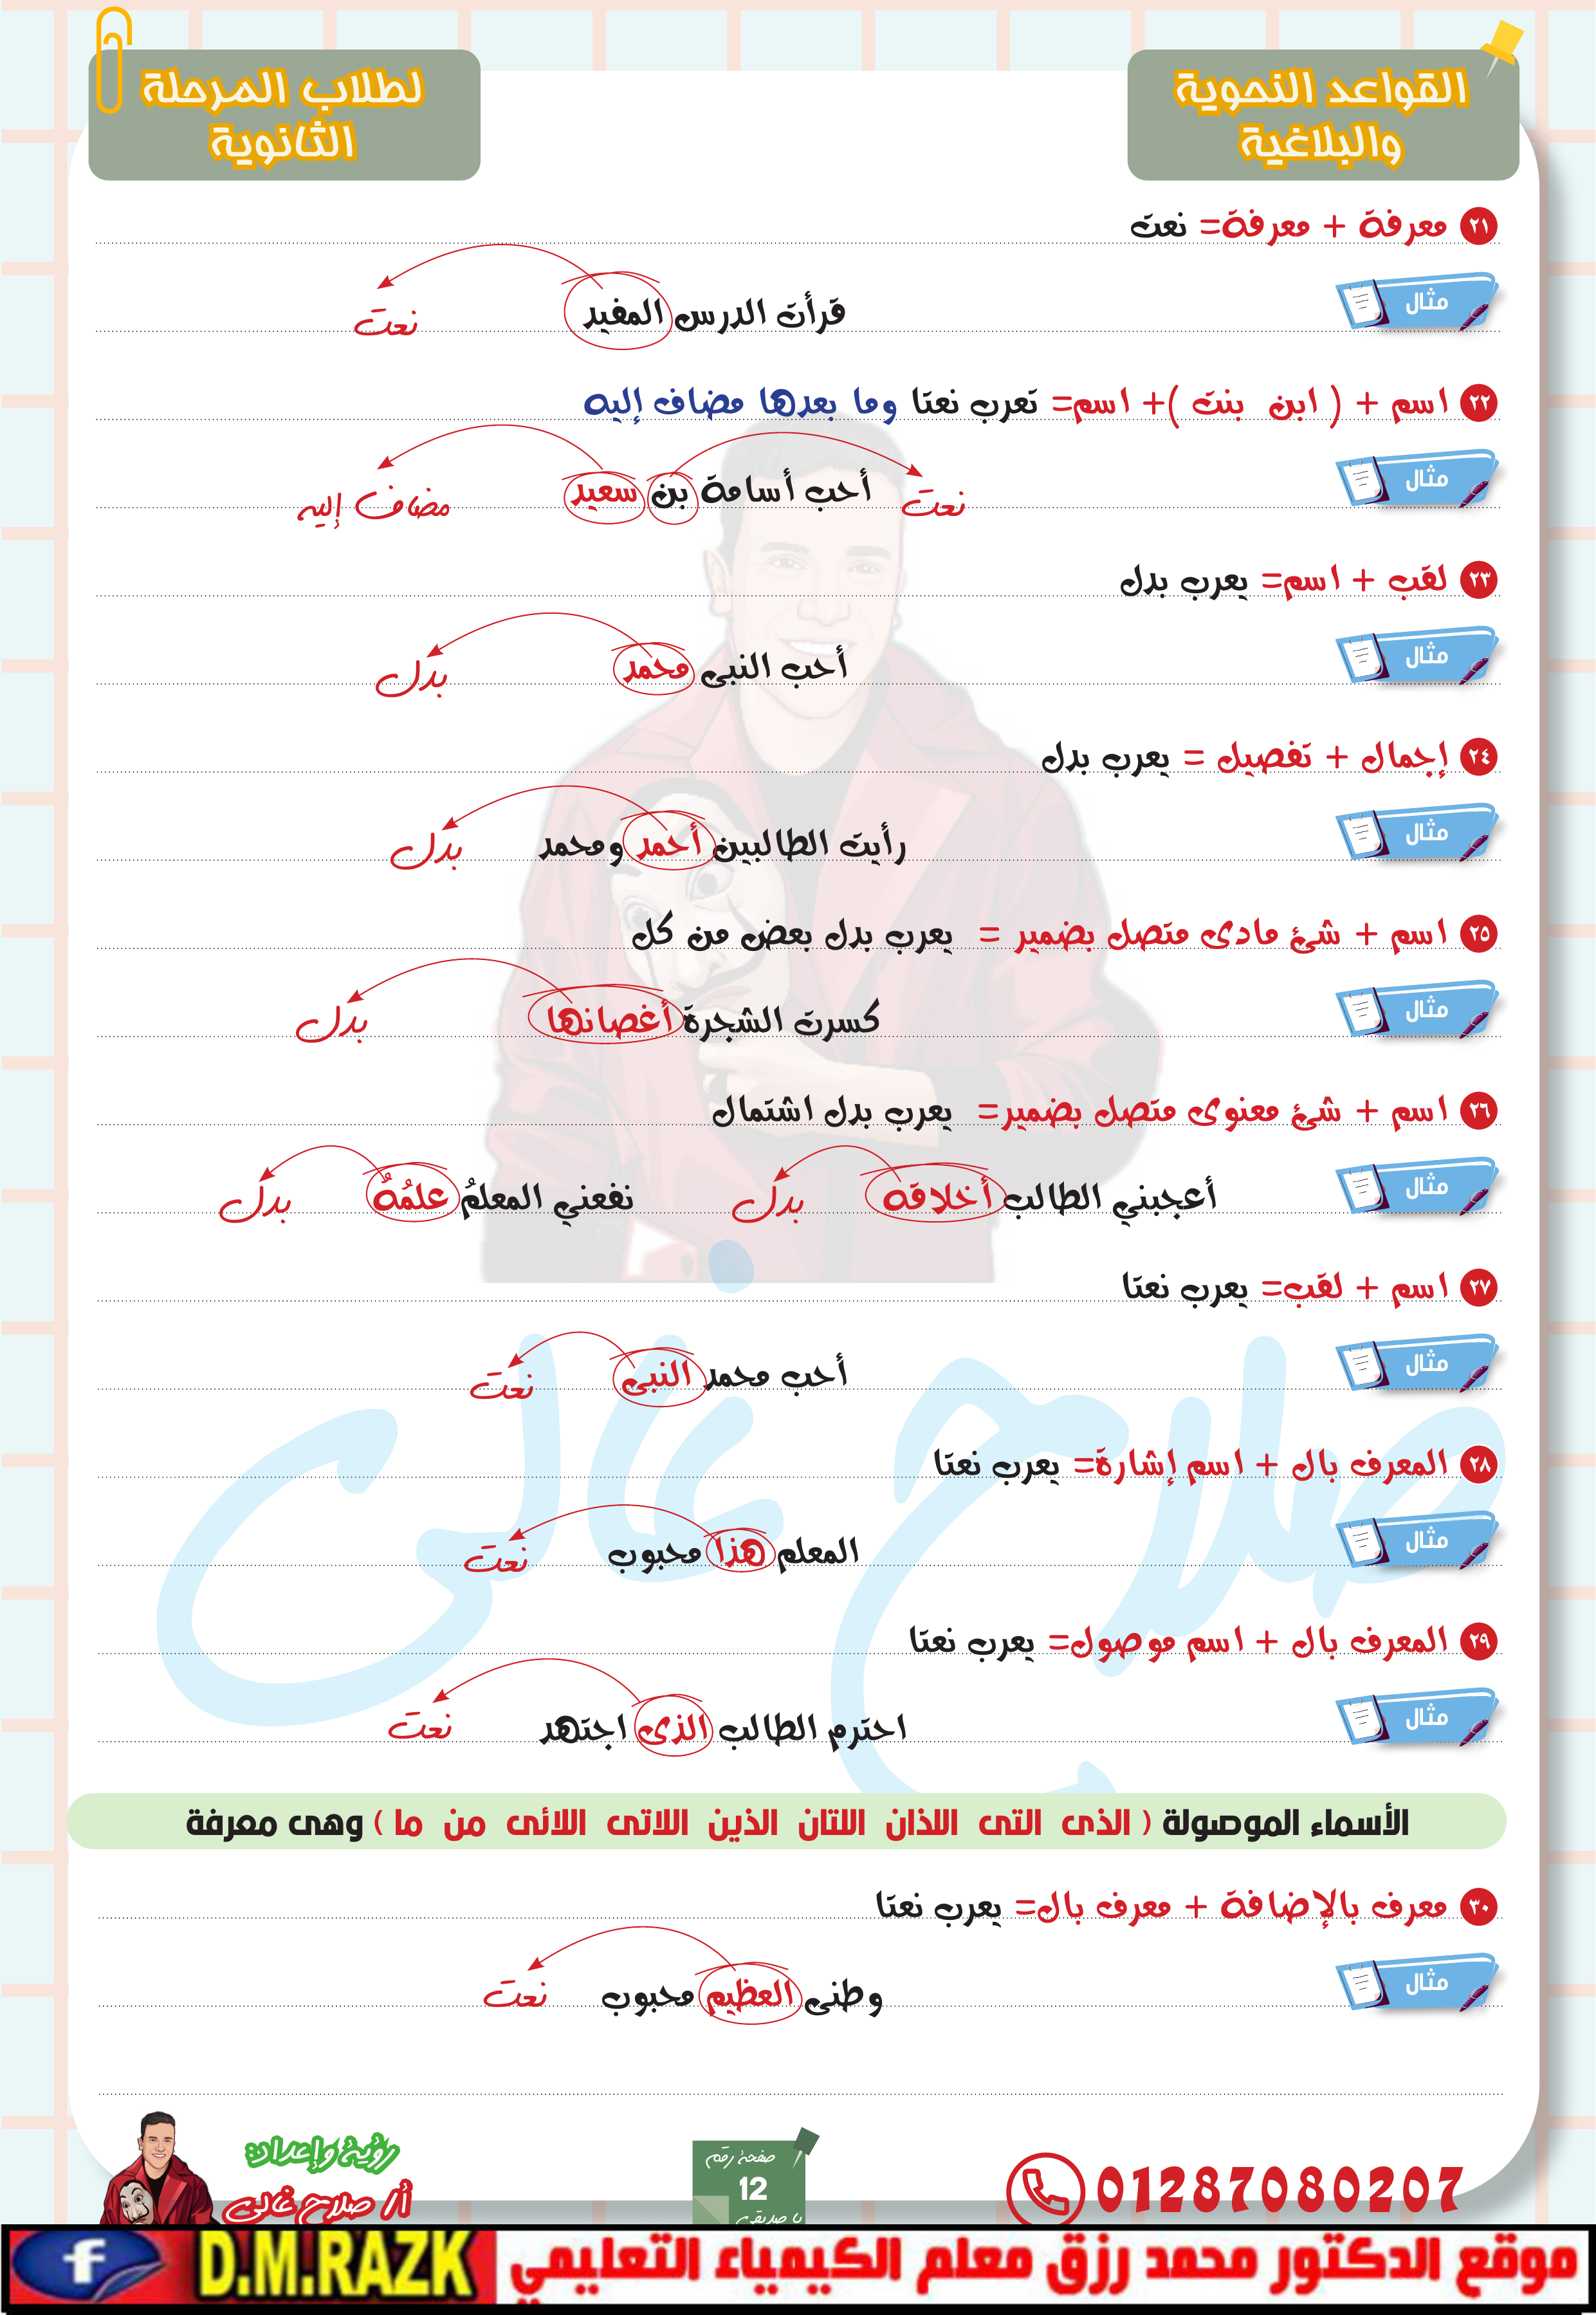 القواعد النحوية
والبلاغية
لطلاب المرحلة
الثانوية
٢١ معرفة + معرفة= نعت
مثال
قرأت الدرس المفيد
نعت
٢٢ اسم + ( ابن بنت )+ اسم= تعرب نعتا وما بعدها مضاف إليه
مثال
نعت
أحب أسامة بن سعيد
مضاف إليه
٢٣ لقب + اسم= يعرب بدل
مثال
أحب النبى محمد
بدل
٢٤ إجمال + تفصيل = يعرب بدل
مثال
رأيت الطالبين أحمد ومحمد
بدل
٢٥ اسم + شئ مادى متصل بضمير = يعرب بدل بعض من كل
مثال
كسرت الشجرة أغصانها
بدل
٢٦ اسم + شئ معنوى متصل بضمير= يعرب بدل اشتمال
مثال
أعجبني الطالب أخلاقه
بدل
نفعني المعلمُ علمُهُ
بدل
٢٧ اسم + لقب= يعرب نعتا
مثال
أحب محمد النبى
نعت
٢٨ المعرف بال + اسم إشارة= يعرب نعتا
مثال
المعلم هذا محبوب
نعت
٢٩ المعرف بال + اسم موصول= يعرب نعتا
مثال
احترم الطالب الذى اجتهد
نعت
الأسماء الموصولة ( الذى التى اللذان اللتان الذين اللاتى اللائى من ما ) وهى معرفة
٣٠ معرف بالإضافة + معرف بال= يعرب نعتا
مثال
وطنى العظيم محبوب
نعت
صلاح غالى
01287080207
صفحة رقم
12
يا صديقي
رؤية وإعداد:
أ/ صلاح غالى
موقع الدكتور محمد رزق معلم الكيمياء التعليمي
D.M.RAZK
f